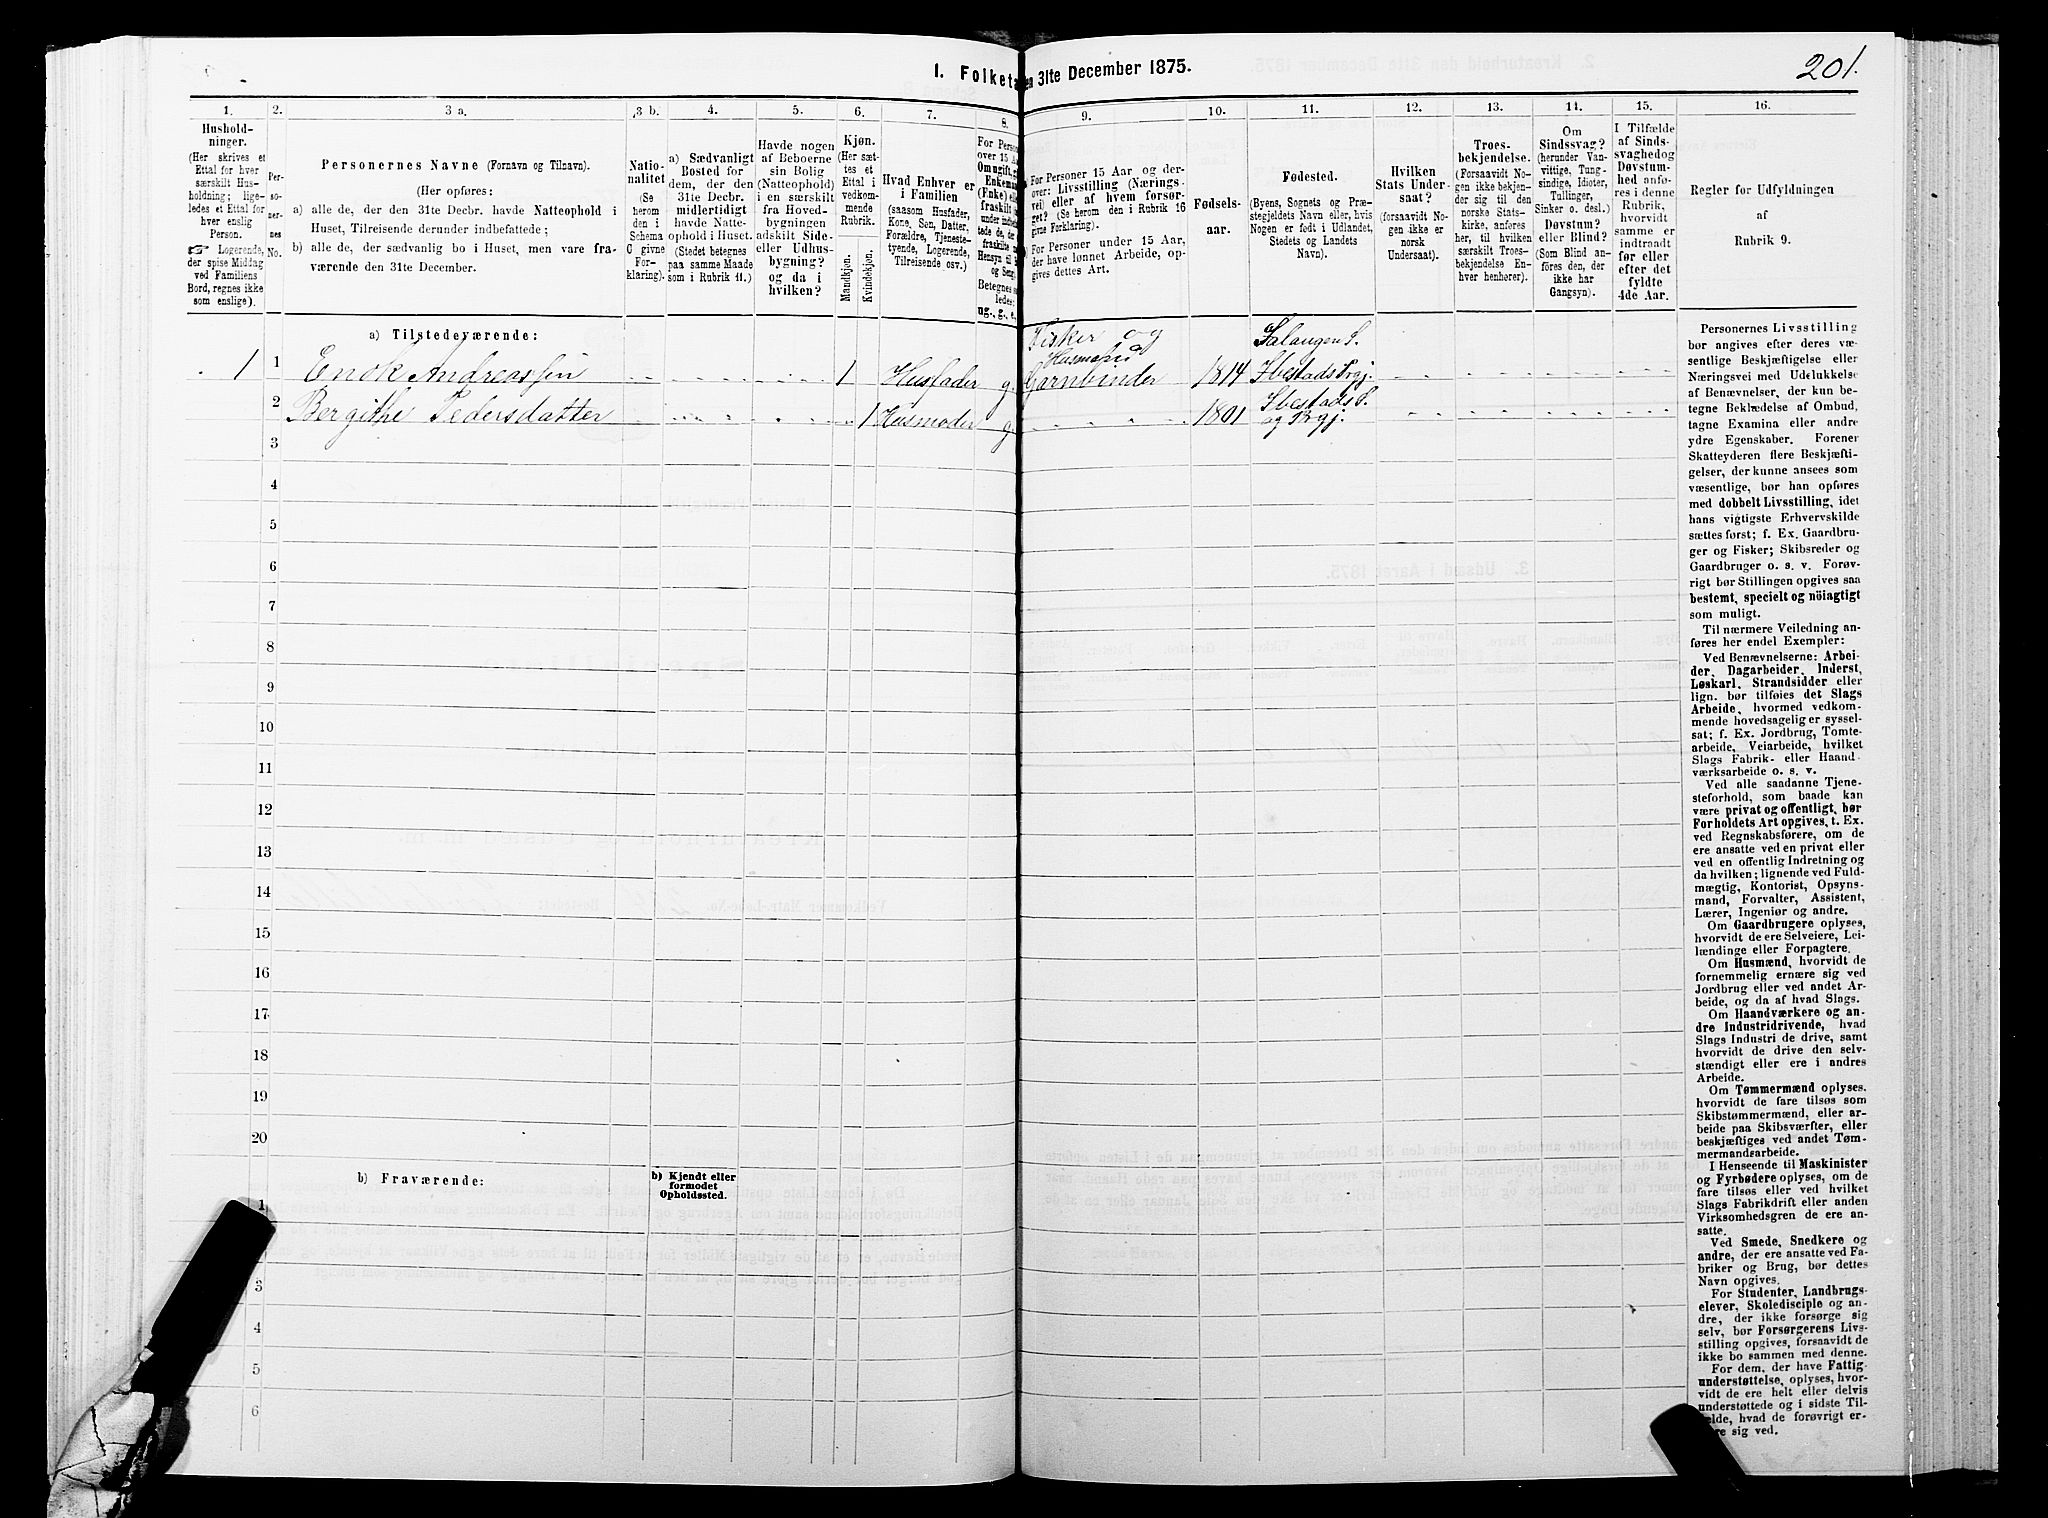 201.
1. Folketæ
en 31te December 1875.
1. 2. 3 a. 3 b. 4. 5. 6. 7. 8. 9. 10. 11. 12. 13. 14. 15. 16.
Hushold-
ninger.
(Her skrives et
Ettal for hver
særskilt Hus-
holdning; lige-
ledes et Ettal for
hver enslig
Person.
☞ Logerende,
der spise Middag
ved Familiens
Bord, regnes ikke
som enslige).
Per-
so-
ner-
nes
No.
Personernes Navne (Fornavn og Tilnavn).
(Her opføres:
a) alle de, der den 31te Decbr. havde Natteophold i
Huset, Tilreisende derunder indbefattede;
b) alle de, der sædvanlig bo i Huset, men vare fra-
værende den 31te December.
Natio-
nalitet
(Se
herom
den i
Schema
C givne
For-
klaring).
a) Sædvanligt
Bosted for
dem, der den
31te Decbr.
midlertidigt
havde Natte-
ophold i Huset.
(Stedet betegnes
paa samme Maade
som i Rubrik 11.)
Havde nogen
af Beboerne
sin Bolig
(Natteophold)
i en særskilt
fra Hoved-
bygningen
adskilt Side-
eller Udhus-
bygning?
og da i
hvilken?
Kjøn.
(Her sæt-
tes et
Ettal i
vedkom-
mende
Rubrik.
Mandkjøn.
Kvindekjøn.
Hvad Enhver er
i Familien
(saasom Husfader,
Kone, Søn, Datter,
Forældre, Tjeneste-
tyende, Logerende,
Tilreisende osv.)
For Person
over 15 Aa
Om ugift, g
Enkema
(Enke) el
fraskilt
Hensyn til
og Seng.
Betegnes
ledes:
ug., g., e.,
For Personer 15 Aar og der-
over: Livsstilling (Nærings-
vei) eller af hvem forsør-
get? (Se herom den i Rubrik 16
givne Forklaring).
For Personer under 15 Aar,
der have lønnet Arbeide, op-
gives dettes Art.
Fødsels-
aar.
Fødested.
(Byens, Sognets og Præ-
stegjeldets Navn eller, hvis
Nogen er født i Udlandet,
Stedets og Landets
Navn).
Hvilken
Stats Under-
saat?
(forsaavidt No-
gen ikke er
norsk
Undersaat).
Troes-
bekjendelse.
(Forsaavidt No-
gen ikke bekjen-
der sig til den
norske Stats-
kirke, anføres
her, til hvilken
særskilt Troes-
bekjendelse En-
hver henhører).
Om
Sindssvag?
(herunder Van-
vittige, Tung-
sindige, Idioter,
Tullinger,
Sinker o. desl.)
Døvstum?
eller Blind?
(Som Blind an-
føres den, der
ikke har
Gangsyn).
I Tilfælde
af Sinds-
svaghedog
Døvstum-
hed anfø-
res i denne
Rubrik,
hvorvidt
samme er
indtraadt
før eller
efter det
fyldte
4de Aar.
Regler for Udfyldningen
af
Rubrik 9.
a) Tilstedeværende:
Fisker og
Husmand
Salangen S.
1 1 Enok Andreassen 1 Husfader g. Garnbinder 1814 Ibestads Prgj.
2 Bergithe Pedersdatter 1 Husmoder g 1801 Ibestads S.
og Prgj.
3
4
5
6
7
8
9
10
11
12
13
14
15
16
17
18
19
20
b) Fraværende:
b) Kjendt eller
formodet
Opholdssted.
1
3
4
5
6
Personernes Livsstilling
bør angives efter deres væ-
sentlige Beskjæftigelse eller
Næringsvei med Udelukkelse
af Benævnelser, der kun be-
tegne Beklædelse af Ombud,
tagne Examina eller andre
ydre Egenskaber. Forener
Skatteyderen flere Beskjæfti-
gelser, der kunne ansees som
væsentlige, bør han opføres
med dobbelt Livsstilling, idet
hans vigtigste Erhvervskilde
sættes først; f. Ex. Gaardbru-
ger og Fisker; Skibsreder og
Gaardbruger o. s. v. Forøv-
rigt bør Stillingen opgives saa
bestemt, specielt og nöiagtigt
som muligt.
Til nærmere Veiledning an-
føres her endel Exempler:
Ved Benævnelserne: Arbei-
der, Dagarbeider, Inderst,
Løskarl, Strandsidder eller
lign. bør tilføies det Slags
Arbeide, hvormed vedkom-
mende hovedsagelig er syssel-
sat; f. Ex. Jordbrug, Tomte-
arbeide, Veiarbeide, hvilket
Slags Fabrik- eller Haand
værksarbeide o. s. v.
Ved alle saadanne Tjene-
steforhold, som baade kan
være privat og offentligt, bør
Forholdets Art opgives, t. Ex.
ved Regnskabsførere, om de
ere ansatte ved en privat eller
ved en offentlig Indretning og
da hvilken; lignende ved Fuld-
mægtig, Kontorist, Opsyns-
mand, Forvalter, Assistent,
Lærer, Ingeniør og andre.
Om Gaardbrugere oplyses,
hvorvidt de ere Selveiere, Lei-
lændinge eller Forpagtere.
Om Husmænd, hvorvidt de
fornemmelig ernære sig ved
Jordbrug eller ved andet Ar-
beide, og da af hvad Slags.
Om Haandværkere og an-
dre Industridrivende, hvad
Slags Industri de drive, samt
hvorvidt de drive den selv-
stændigt eller ere i andres
Arbeide.
Om Tømmermænd oplyses,
hvorvidt de fare tilsøs som
Skibstømmermænd, eller ar-
beide paa Skibsværfter, eller
beskjæftiges ved andet Tøm-
mermandsarbeide.
I Henseende til Maskinister
og Fyrbødere oplyses, om de
fare tilsøs eller ved hvilket
Slags Fabrikdrift eller anden
Virksomhedsgren de ere an-
satte.
Ved Smede, Snedkere og
andre, der ere ansatte ved Fa-
briker og Brug, bør dettes
Navn opgives.
For Studenter, Landbrugs-
elever, Skoledisciple og an-
dre, der ikke forsørge sig
selv, bør Forsørgerens Livs-
stilling opgives, forsaavidt de
ikke bo sammen med denne.
For dem, der have Fattig-
understøttelse, oplyses, hvor-
vidt de ere helt eller delvis
understøttede og i sidste Til-
ælde, hvad de forøvrigt er-
re sig ved.